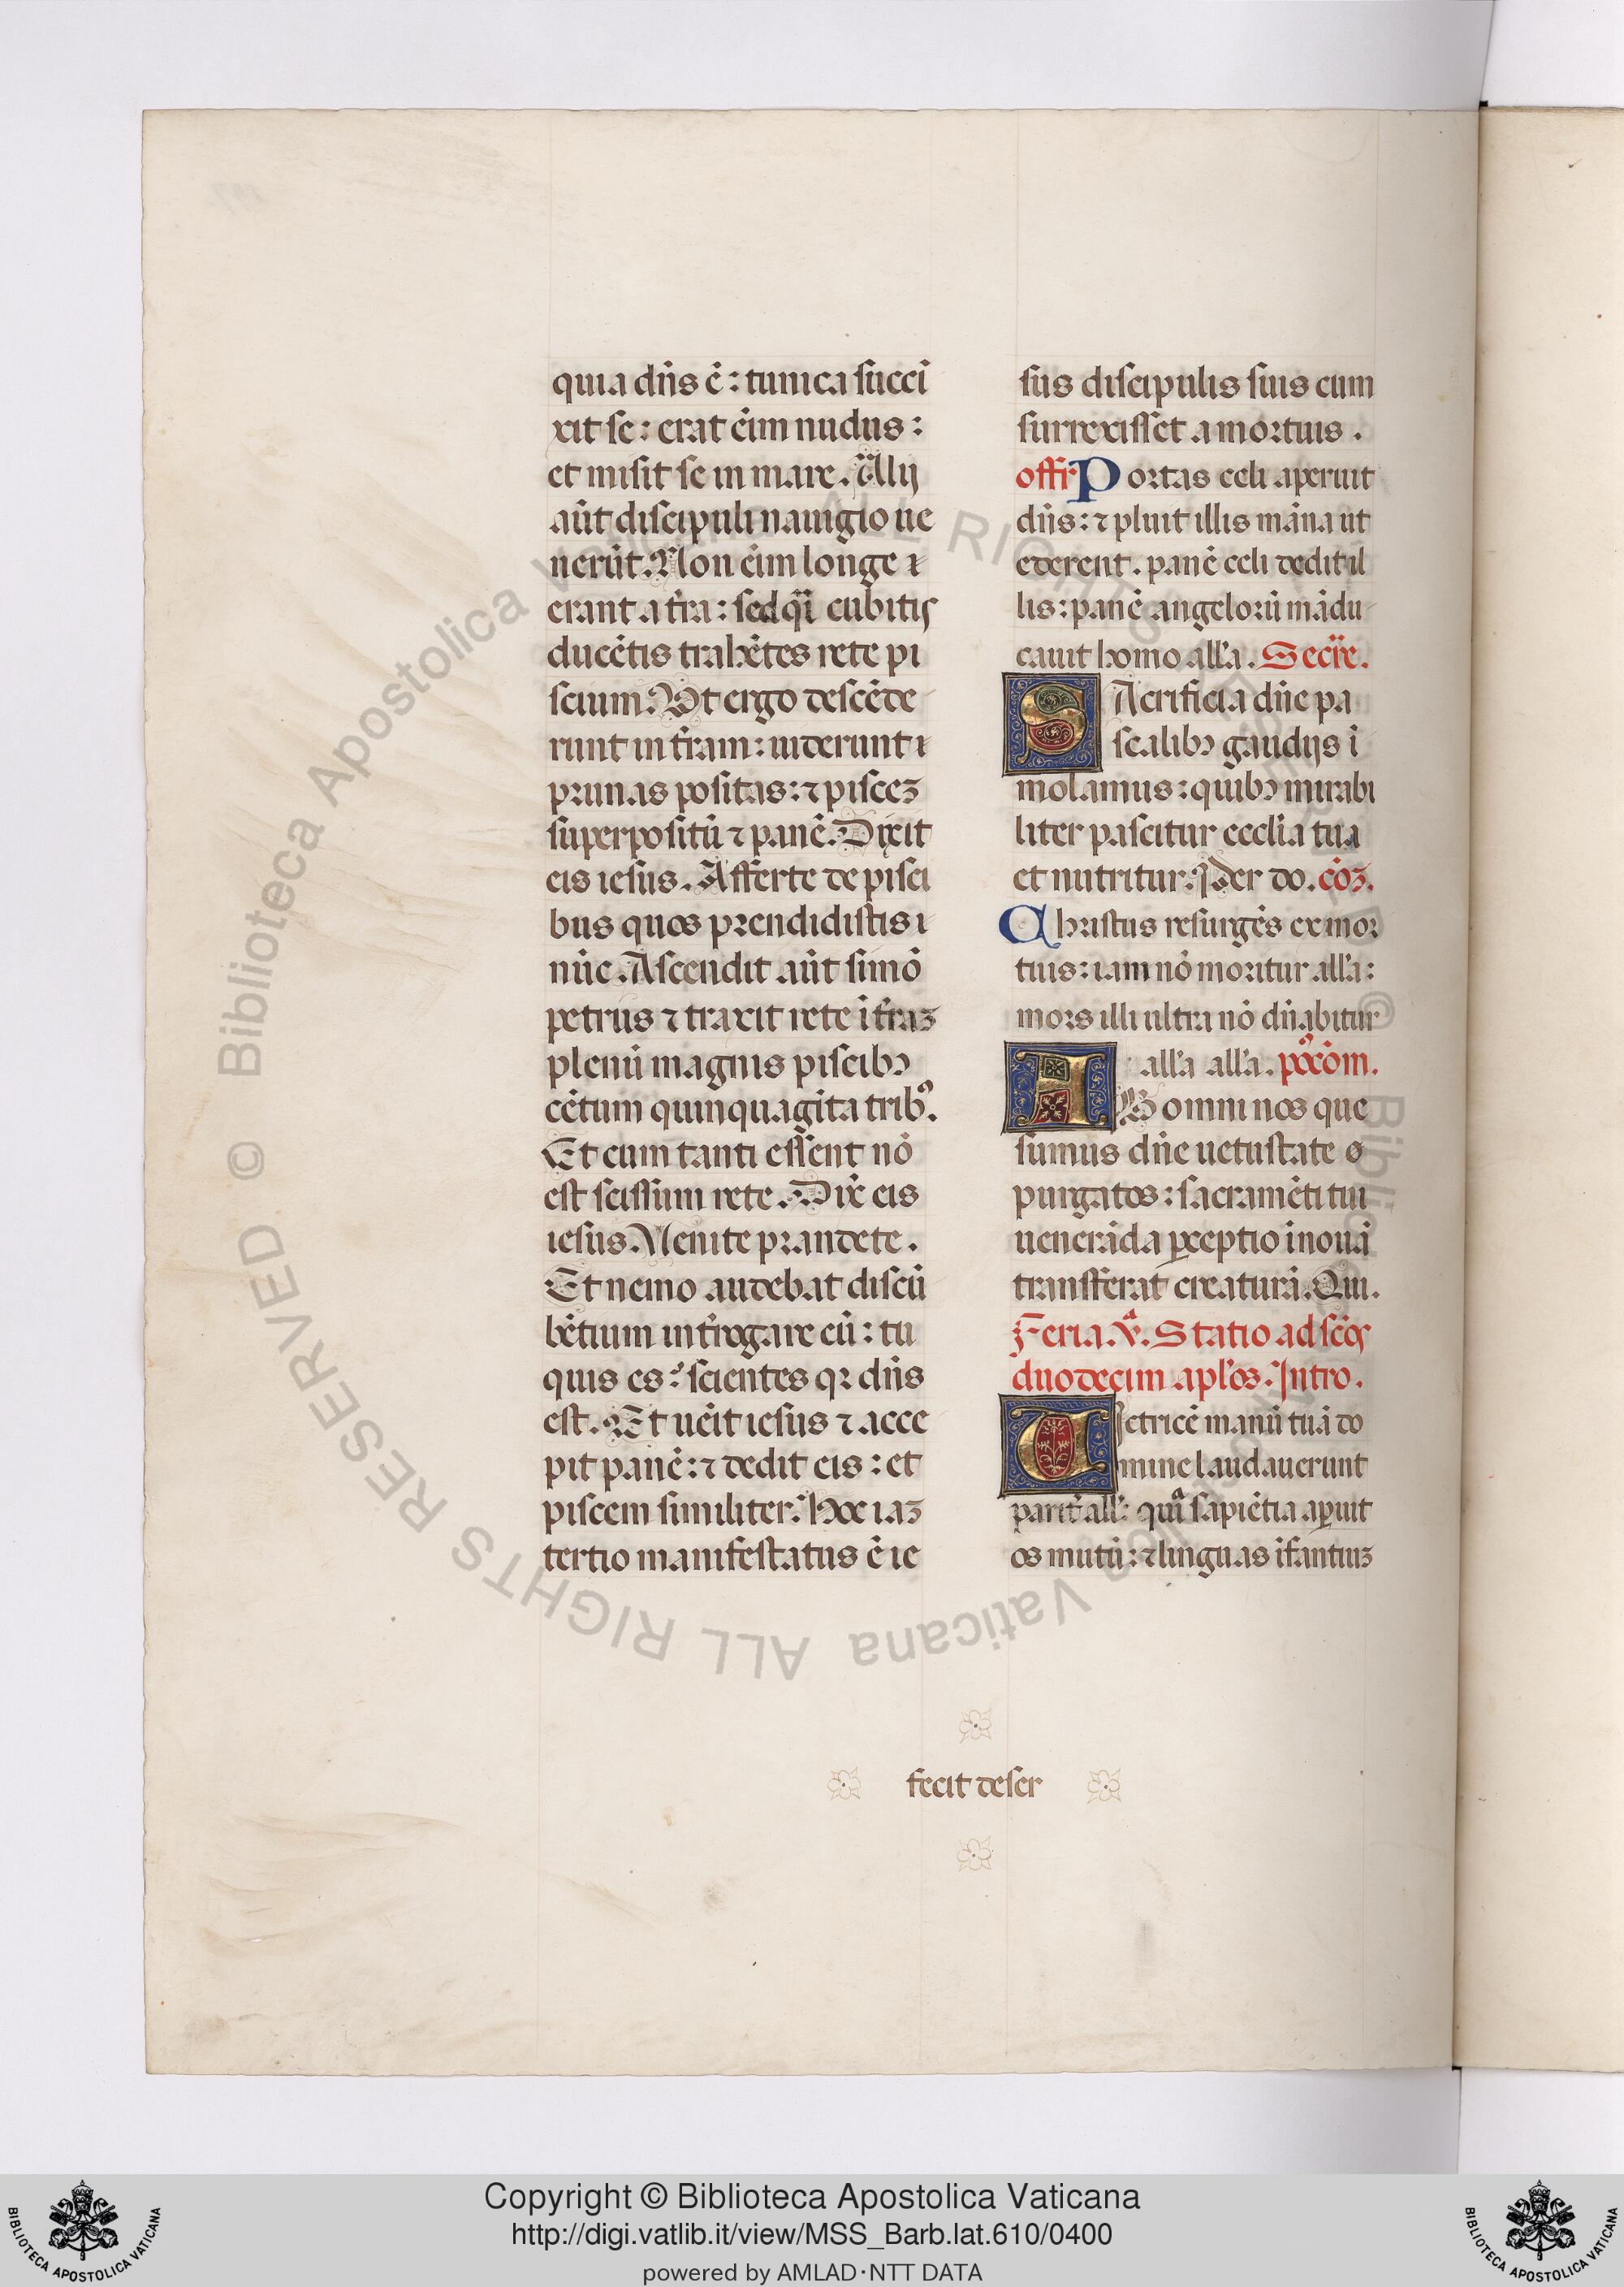 quia dñs ē: tunica succī
xit se: erat eīm nudus:
et misit se in mare. Alij
aūt discipuli nauigio ue
nerūt. Non eīm longe
erant a t̄ra: sed q̄i cubitis
ducētis trahētes rete pi
scium. Ut ergo descēde
runt in t̄ram: uiderunt
prunas positas: ⁊ pisceʒ
superpositū ⁊ panē. Dixit
eis iesus. Afferte de pisci
bus quos prendidistis
nūc. Ascendit aūt simō
petrus ⁊ traxit rete ī t̄raʒ
plenū magnis piscibꝰ
cētum quinquagīta tribꝰ.
Et cum tanti essent nō
est scissum rete. Dix̄ eis
iesus. Venite prandete.
Et nemo audebat discū
bētium int̄rogare eū: tu
quis es? scientes qꝛ dñs
est. Et uēit iesus ⁊ acce
pit panē: ⁊ dedit eis: et
piscem similiter. Hoc iaʒ
tertio manifestatus ē ie
sus discipulis suis cum
surrexisset a mortuis.
offr̄ Portas celi aperuit
dñs: ⁊ pluit illis māna ut
ederent. panē celi dedit il
lis: panē angelorū mādu
cauit homo all̄a. Secr̄e.
SAcrificia dñe pa
scalibꝰ gaudijs ī
molamus: quibꝰ mirabi
liter pascitur ecclīa tua
et nutritur. Per do. cōʒ.
Christus resurgēs ex mor
tuis: iam nō moritur all̄a:
mors illi ultra nō dñabitur
all̄a all̄a. pꝰcōm.
AB omni nos que
sumus dñe uetustate
purgatos: sacramēti tui
uenerāda ꝑceptio ī nouā
transferat creaturā. Qui.
Feria.v̄. Statio ad sc̄os
duodecim apl̄os. Intro.
VIctricē manū tuā do
mine laudauerunt
parit̄ all̄: quīa sapiētia aꝑuit
os mutū: ⁊ linguas īfantiuʒ
fecit deser
© Biblioteca Apostolica Vaticana ALL RIGHTS RESERVED © Biblioteca Apostolica Vaticana ALL RIGHTS RESERVED
Copyright © Biblioteca Apostolica Vaticana
http://digi.vatlib.it/view/MSS_Barb.lat.610/0400
powered by AMLAD·NTT DATA
BIBLIOTECA APOSTOLICA VATICANA
BIBLIOTECA APOSTOLICA VATICANA